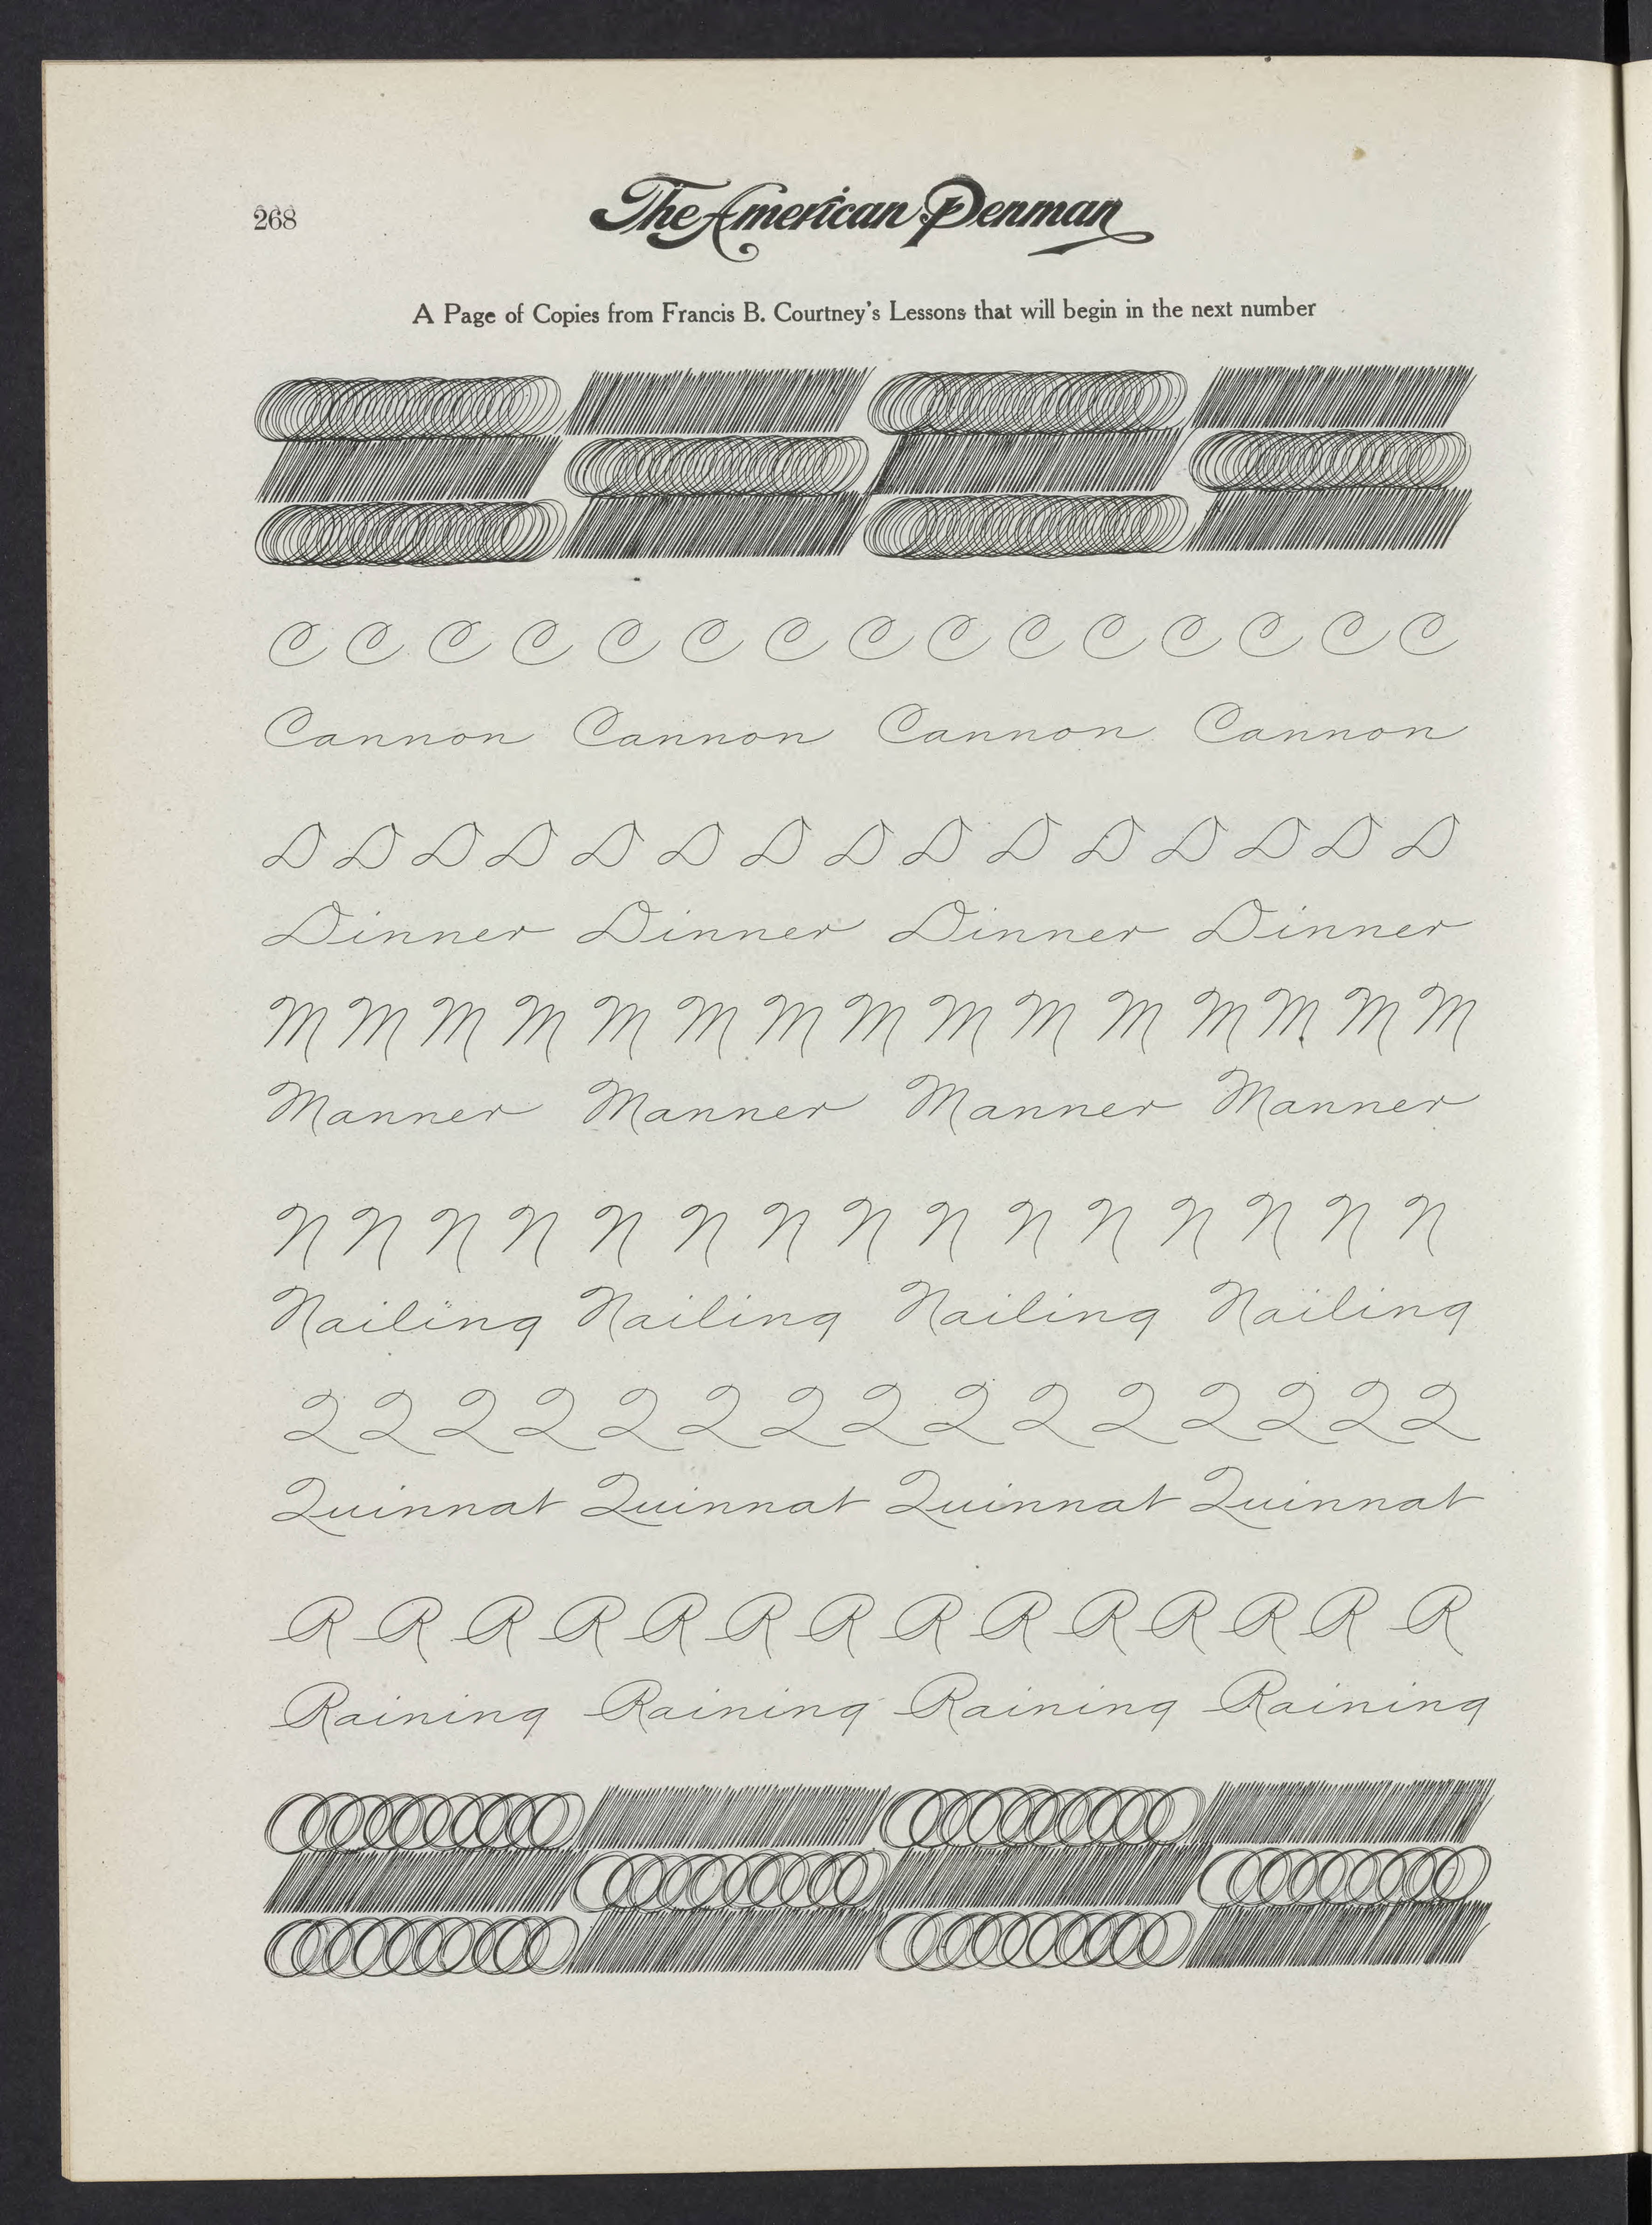 268
The American Penman
A Page of Copies from Francis B. Courtney's Lessons that will begin in the next number
C C C C C C C C C C C C C C C
Cannon Cannon Cannon Cannon
D D D D D D D D D D D D D D D
Dinner Dinner Dinner Dinner
M M M M M M M M M M M M M M M
Manner Manner Manner Manner
N N N N N N N N N N N N N N N
Nailing Nailing Nailing Nailing
Q Q Q Q Q Q Q Q Q Q Q Q Q Q Q
Quinnat Quinnat Quinnat Quinnat
R R R R R R R R R R R R R R
Raining Raining Raining Raining